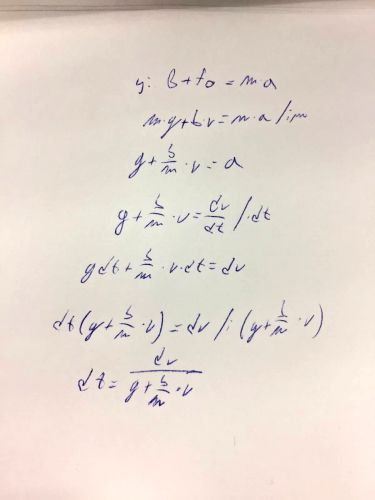 y: B + f₀ = m·a
m·g + b·v = m·a /:m
g + b/m · v = a
g + b/m · v = dv/dt /·dt
g dt + b/m · v · dt = dv
dt(g + b/m · v) = dv /: (g + b/m · v)
dt = dv/(g + b/m · v)